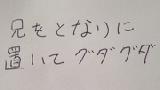 兄をとなりに
置いてグダグダ